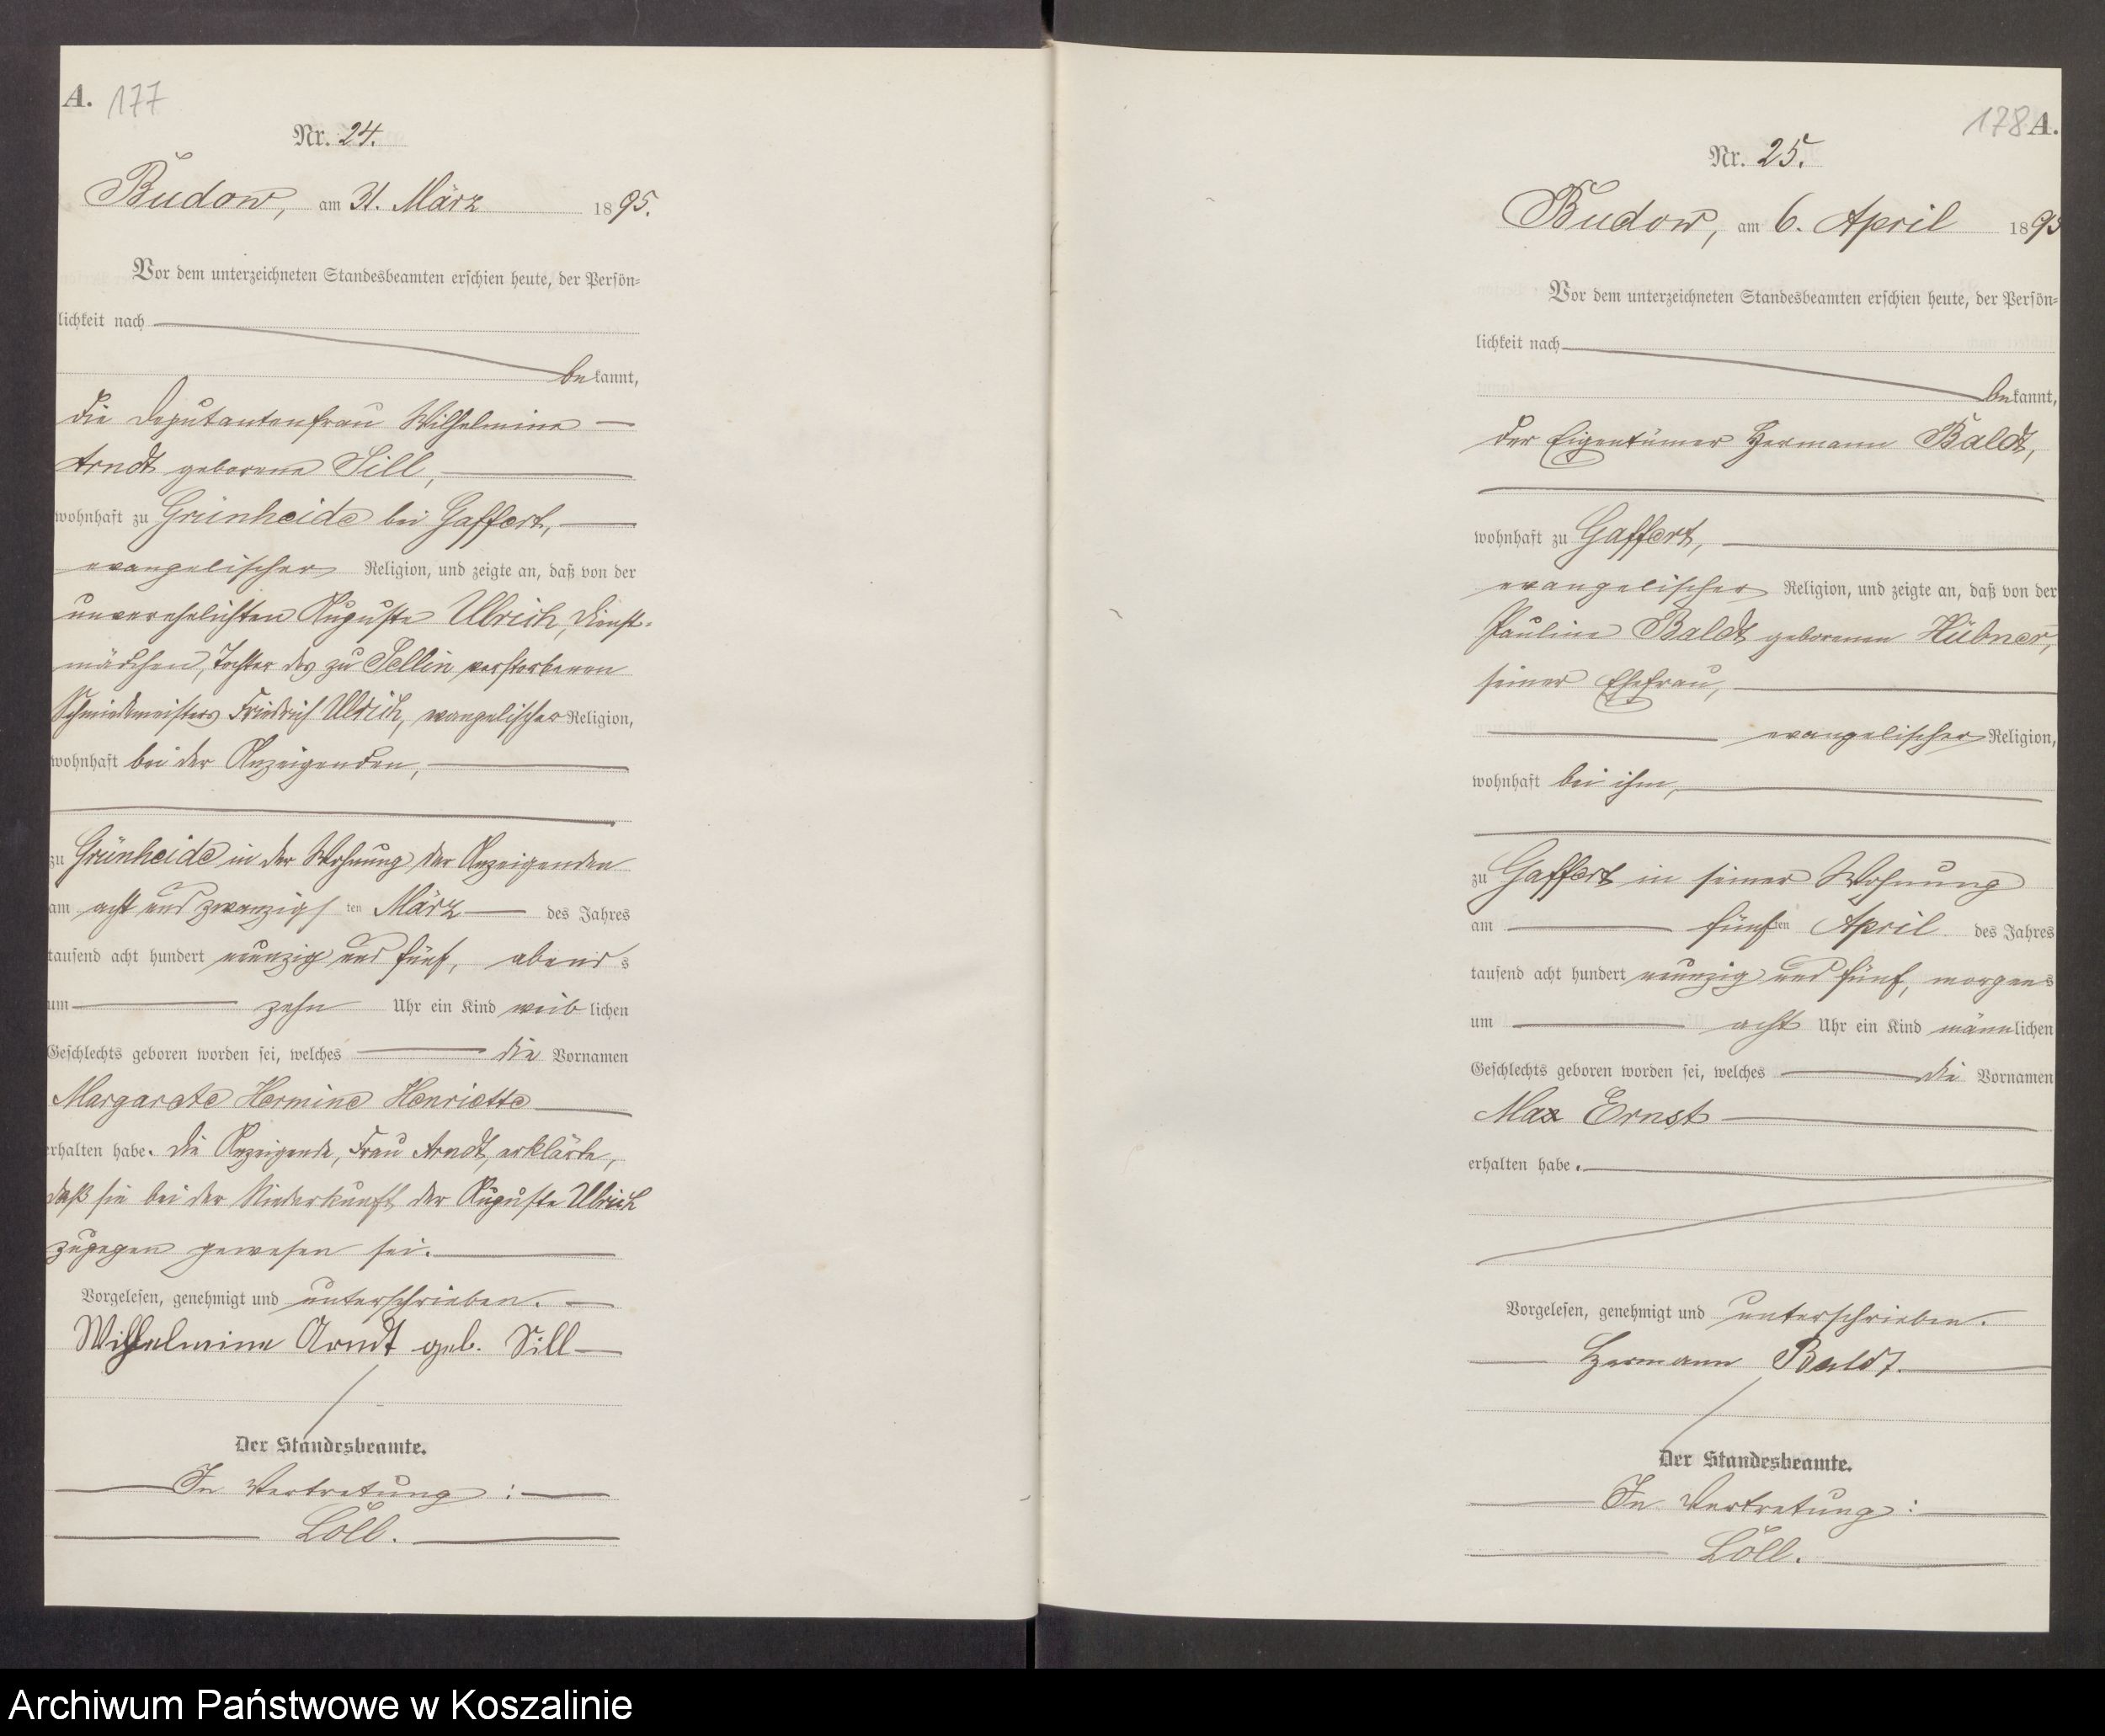 A. 177
Nr. 24.
Budow, am 31. März 1895.
Vor dem unterzeichneten Standesbeamten erschien heute, der Persön-
lichkeit nach
bekannt,
die Deputantenfrau Wilhelmine
Arndt geborene Sill,
wohnhaft zu Grünheide bei Gaffert,
evangelischer Religion, und zeigte an, daß von der
unverehelichten Auguste Ulrich, Dienst-
mädchen, Tochter des zu Sellin verstorbenen
Schmiedemeisters Friedrich Ulrich, evangelischer Religion,
wohnhaft bei der Anzeigenden,
zu Grünheide in der Wohnung der Anzeigenden
am acht und zwanzigsten März des Jahres
tausend acht hundert neunzig und fünf, abends
um zehn Uhr ein Kind weiblichen
Geschlechts geboren worden sei, welches die Vornamen
Margarete Hermine Henriette
erhalten habe. Die Anzeigende, Frau Arndt, erklärte,
daß sie bei der Niederkunft der Auguste Ulrich
zugegen gewesen sei.
Vorgelesen, genehmigt und unterschrieben.
Wilhelmine Arndt geb. Sill
Der Standesbeamte.
In Vertretung:
Löll.
178 A.
Nr. 25.
Budow, am 6. April 1895
Vor dem unterzeichneten Standesbeamten erschien heute, der Persön-
lichkeit nach
bekannt,
der Eigentümer Hermann Baldt,
wohnhaft zu Gaffert,
evangelischer Religion, und zeigte an, daß von der
Pauline Baldt geborenen Hübner,
seiner Ehefrau,
evangelischer Religion,
wohnhaft bei ihm,
zu Gaffert in seiner Wohnung
am fünften April des Jahres
tausend acht hundert neunzig und fünf, morgens
um acht Uhr ein Kind männlichen
Geschlechts geboren worden sei, welches die Vornamen
Max Ernst
erhalten habe.
Vorgelesen, genehmigt und unterschrieben.
Hermann Baldt.
Der Standesbeamte.
In Vertretung:
Löll.
Archiwum Państwowe w Koszalinie